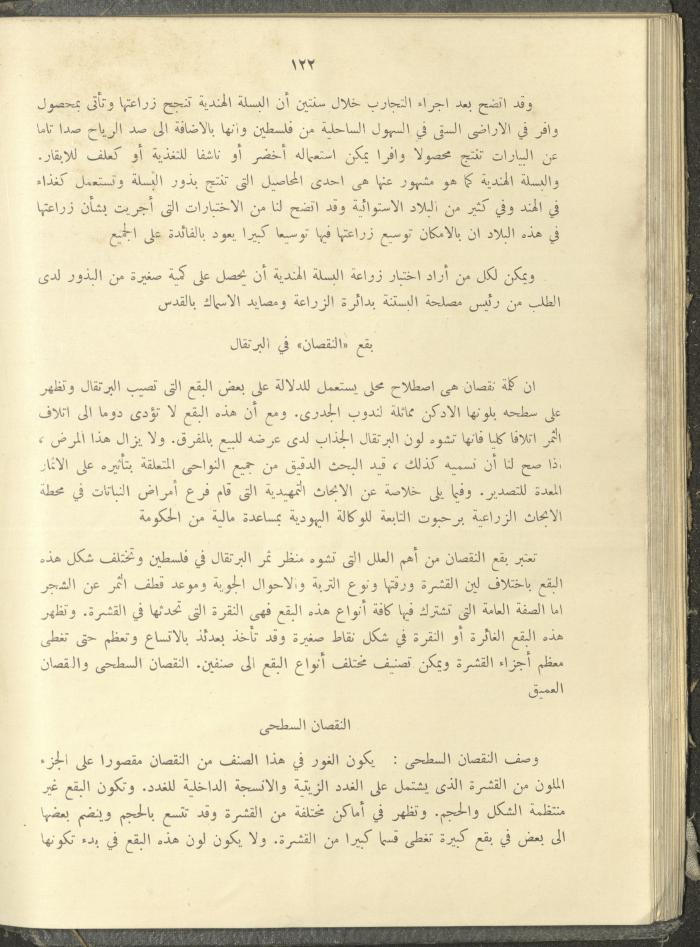 ١٢٢
وقد اتضح بعد اجراء التجارب خلال سنتين أن البسلة الهندية تنجح زراعتها وتأتى بمحصول
وافر في الاراضى السقى في السهول الساحلية من فلسطين وانها بالاضافة الى صد الرياح صدا تاما
عن البيارات تنتج محصولا وافرا يمكن استعماله أخضر أو ناشفا للتغذية أو كعلف للابقار.
والبسلة الهندية كما هو مشهور عنها هى احدى المحاصيل التى تنتج بذور البسلة وتستعمل كغذاء
في الهند وفي كثير من البلاد الاستوائية وقد اتضح لنا من الاختبارات التى أجريت بشأن زراعتها
في هذه البلاد ان بالامكان توسيع زراعتها فيها توسيعا كبيرا يعود بالفائدة على الجميع
ويمكن لكل من أراد اختبار زراعة البسلة الهندية أن يحصل على كمية صغيرة من البذور لدى
الطلب من رئيس مصلحة البستنة بدائرة الزراعة ومصايد الاسماك بالقدس
بقع «النقصان» في البرتقال
ان كلمة نقصان هى اصطلاح محلى يستعمل للدلالة على بعض البقع التى تصيب البرتقال وتظهر
على سطحه بلونها الادكن مماثلة لندوب الجدرى. ومع أن هذه البقع لا تؤدى دوما الى اتلاف
الثمر اتلافا كليا فانها تشوه لون البرتقال الجذاب لدى عرضه للبيع بالمفرق. ولا يزال هذا المرض ،
اذا صح لنا أن نسميه كذلك ، قيد البحث الدقيق من جميع النواحى المتعلقة بتأثيره على الاثمار
المعدة للتصدير. وفيما يلى خلاصة عن الابحاث التمهيدية التى قام فرع أمراض النباتات في محطة
الابحاث الزراعية برحبوت التابعة للوكالة اليهودية بمساعدة مالية من الحكومة
تعتبر بقع النقصان من أهم العلل التى تشوه منظر ثمر البرتقال في فلسطين وتختلف شكل هذه
البقع باختلاف لين القشرة ورقتها ونوع التربة والاحوال الجوية وموعد قطف الثمر عن الشجر
اما الصفة العامة التى تشترك فيها كافة أنواع هذه البقع فهى النقرة التى تحدثها في القشرة. وتظهر
هذه البقع الغائرة أو النقرة في شكل نقاط صغيرة وقد تأخذ بعدئذ بالاتساع وتعظم حتى تغطى
معظم أجزاء القشرة ويمكن تصنيف مختلف أنواع البقع الى صنفين. النقصان السطحى والنقصان
العميق
النقصان السطحى
وصف النقصان السطحى : يكون الغور في هذا الصنف من النقصان مقصورا على الجزء
الملون من القشرة الذى يشتمل على الغدد الزيتية والانسجة الداخلية للغدد. وتكون البقع غير
منتظمة الشكل والحجم. وتظهر في أماكن مختلفة من القشرة وقد تتسع بالحجم وينضم بعضها
الى بعض في بقع كبيرة تغطى قسما كبيرا من القشرة. ولا يكون لون هذه البقع في بدء تكونها